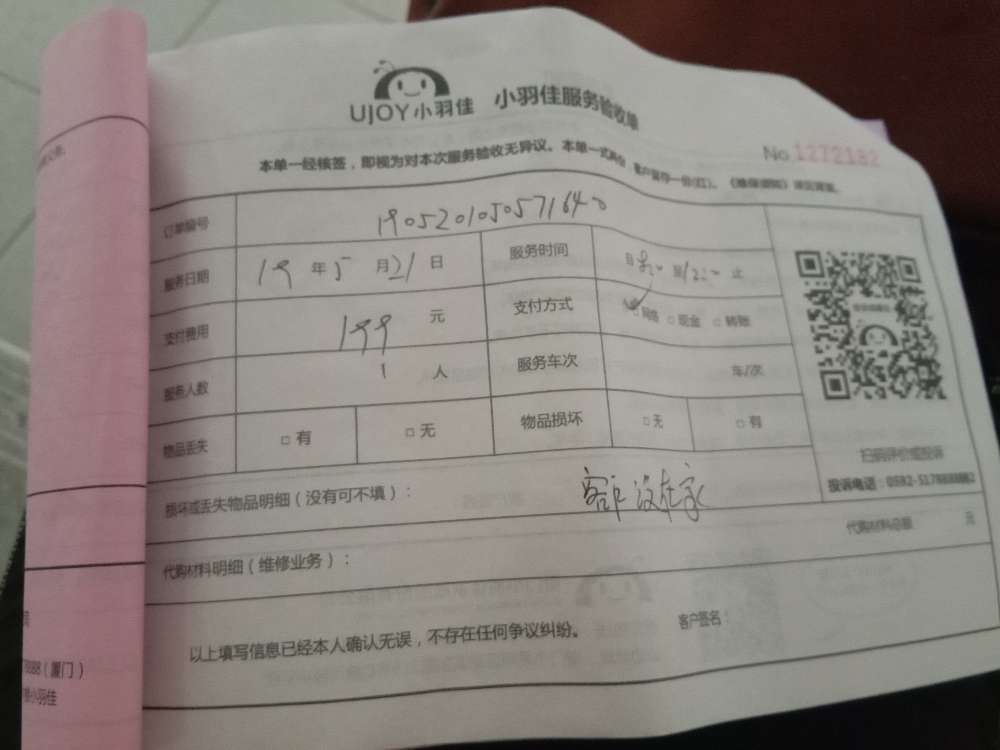 UJOY小羽佳 小羽佳服务验收单
本单一经核签，即视为对本次服务验收无异议。本单一式两份 客户留存一份(红)。
No 1272182
订单编号 1905201050571640
服务日期 19 年 5 月 21 日 服务时间 自 至 止
支付费用 199 元 支付方式 网络 □ 现金 □ 转账
服务人数 1 人 服务车次 车/次
物品丢失 □ 有 □ 无 物品损坏 □ 无 □ 有
扫码评价或投诉
损坏或丢失物品明细（没有可不填）： 客户没在家
代购材料明细（维修业务）： 代购材料总额 元
以上填写信息已经本人确认无误，不存在任何争议纠纷。 客户签名：
（厦门）
小羽佳